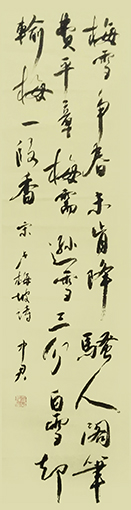 梅雪争春未肯降騷人阁筆
費平章梅需遜雪三分白雪却
輸梅一段香 宋卢梅坡诗 中君